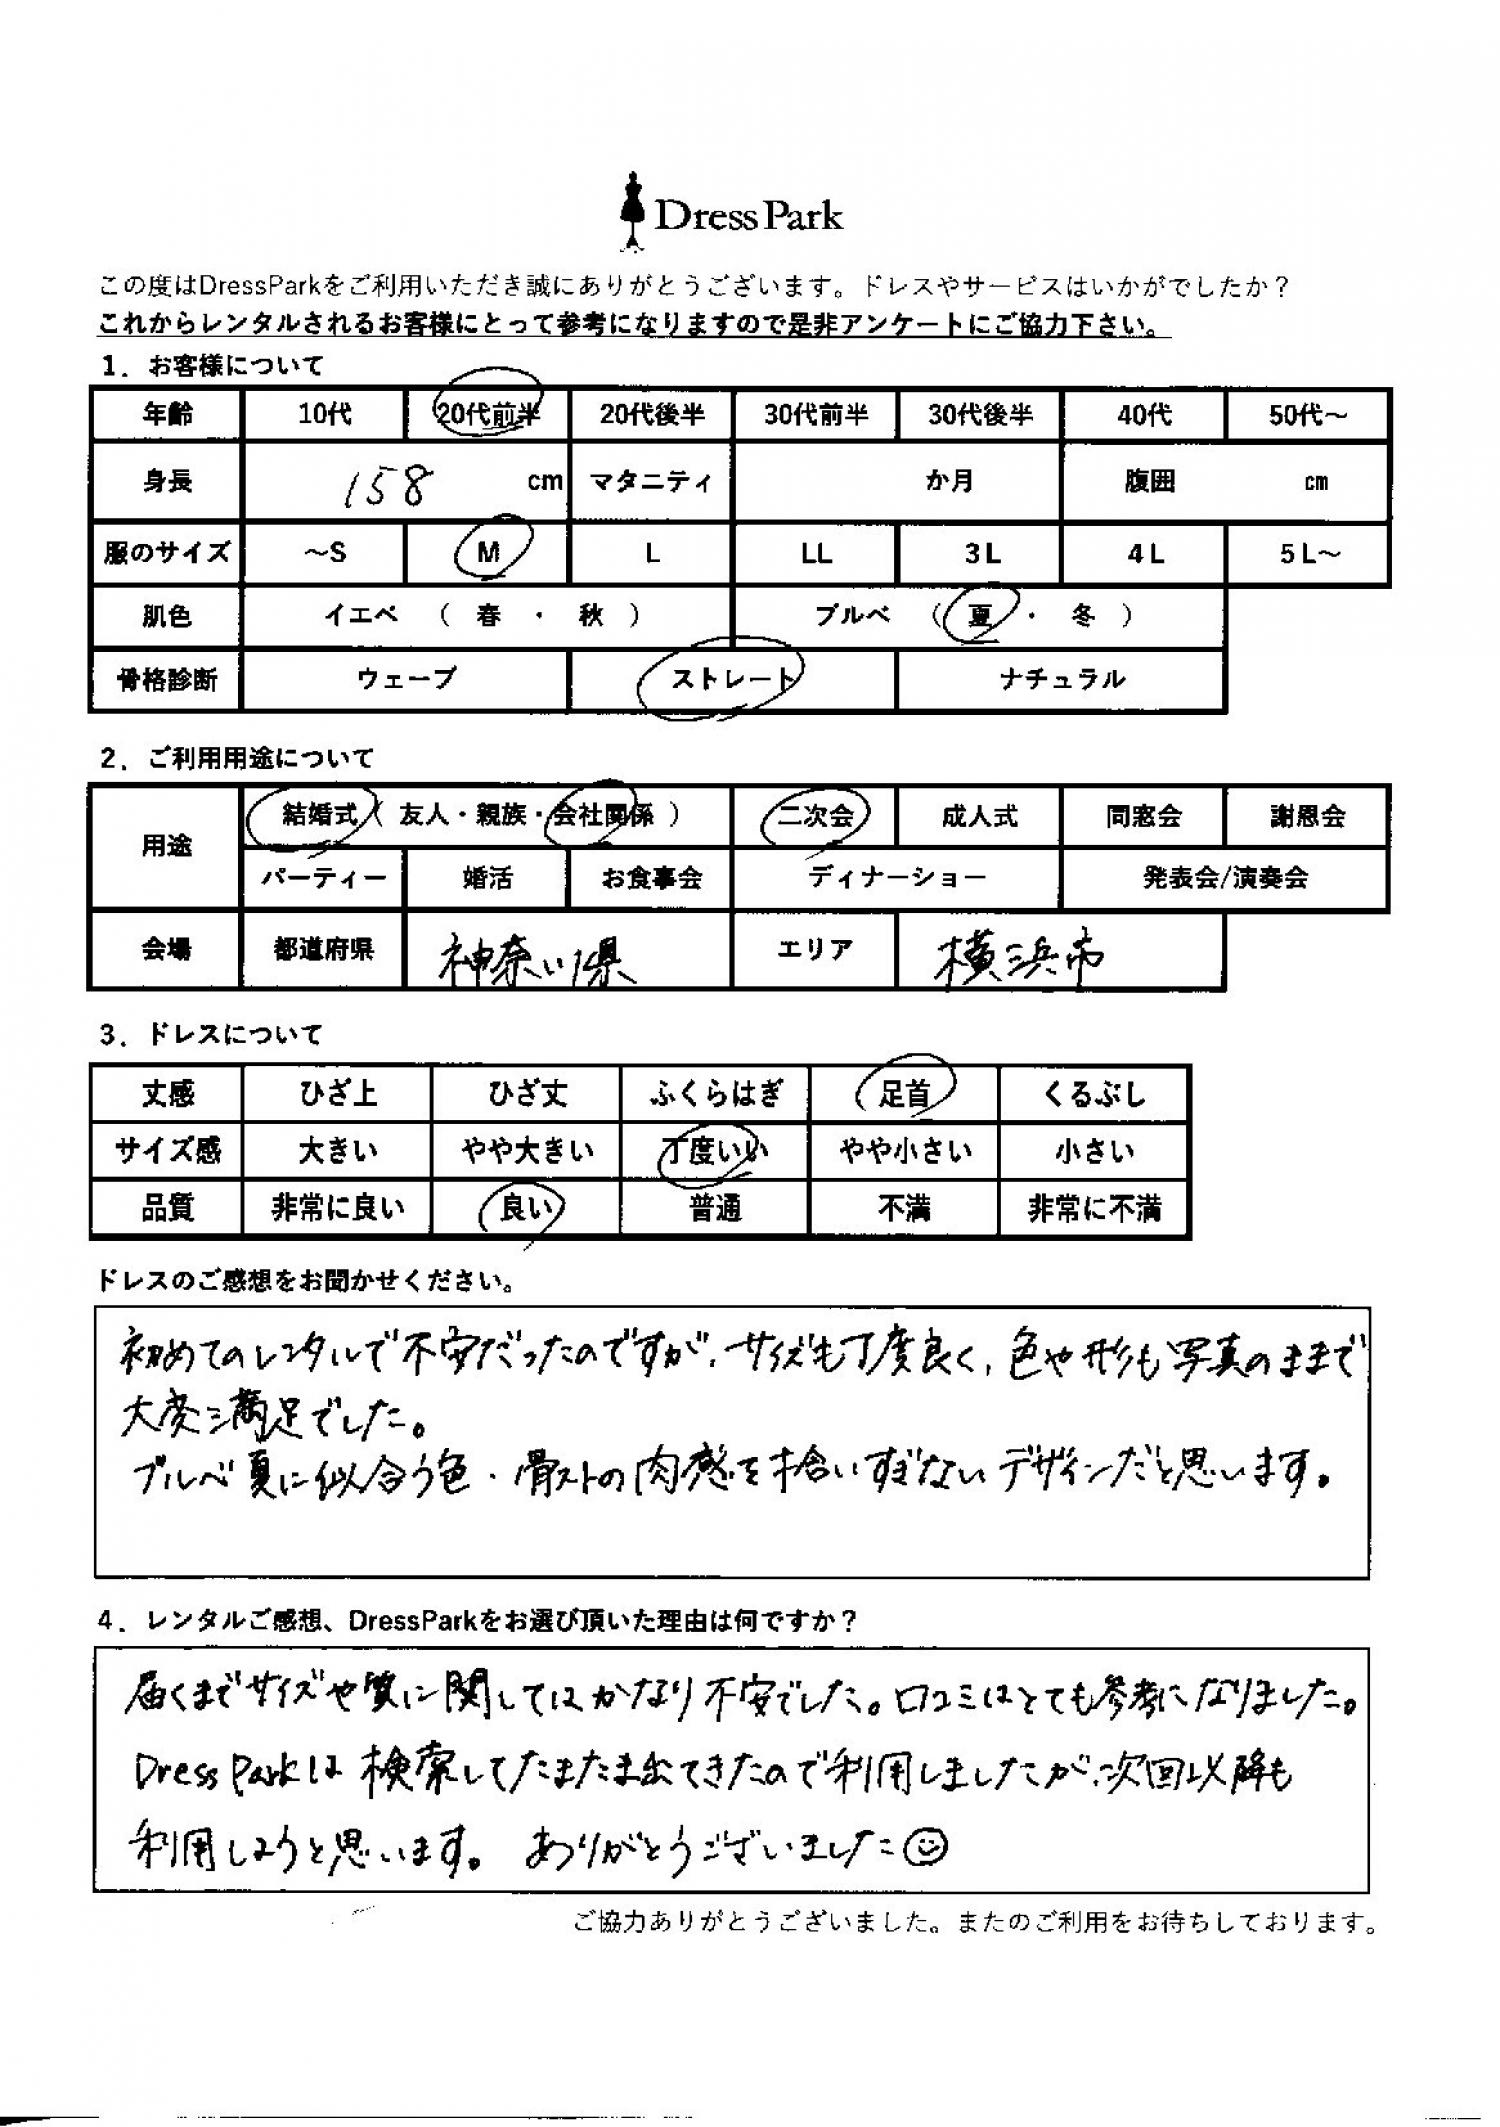 Dress Park
この度はDressParkをご利用いただき誠にありがとうございます。ドレスやサービスはいかがでしたか？
これからレンタルされるお客様にとって参考になりますので是非アンケートにご協力下さい。
1．お客様について
年齢 10代 20代前半 20代後半 30代前半 30代後半 40代 50代～
身長 158 cm マタニティ か月 腹囲 ㎝
服のサイズ ～S M L LL 3L 4L 5L～
肌色 イエベ （ 春 ・ 秋 ） ブルベ （ 夏 ・ 冬 ）
骨格診断 ウェーブ ストレート ナチュラル
2．ご利用用途について
用途 結婚式（ 友人・親族・会社関係 ） 二次会 成人式 同窓会 謝恩会
パーティー 婚活 お食事会 ディナーショー 発表会/演奏会
会場 都道府県 神奈川県 エリア 横浜市
3．ドレスについて
丈感 ひざ上 ひざ丈 ふくらはぎ 足首 くるぶし
サイズ感 大きい やや大きい 丁度いい やや小さい 小さい
品質 非常に良い 良い 普通 不満 非常に不満
ドレスのご感想をお聞かせください。
初めてのレンタルで不安だったのですが、サイズも丁度良く、色や形も写真のままで
大変満足でした。
ブルベ夏に似合う色・骨ストの肉感を拾いすぎないデザインだと思います。
4．レンタルご感想、DressParkをお選び頂いた理由は何ですか？
届くまでサイズや質に関してはかなり不安でした。口コミはとても参考になりました。
Dress Parkは検索してたまたま出てきたので利用しましたが、次回以降も
利用しようと思います。 ありがとうございました☺
ご協力ありがとうございました。またのご利用をお待ちしております。